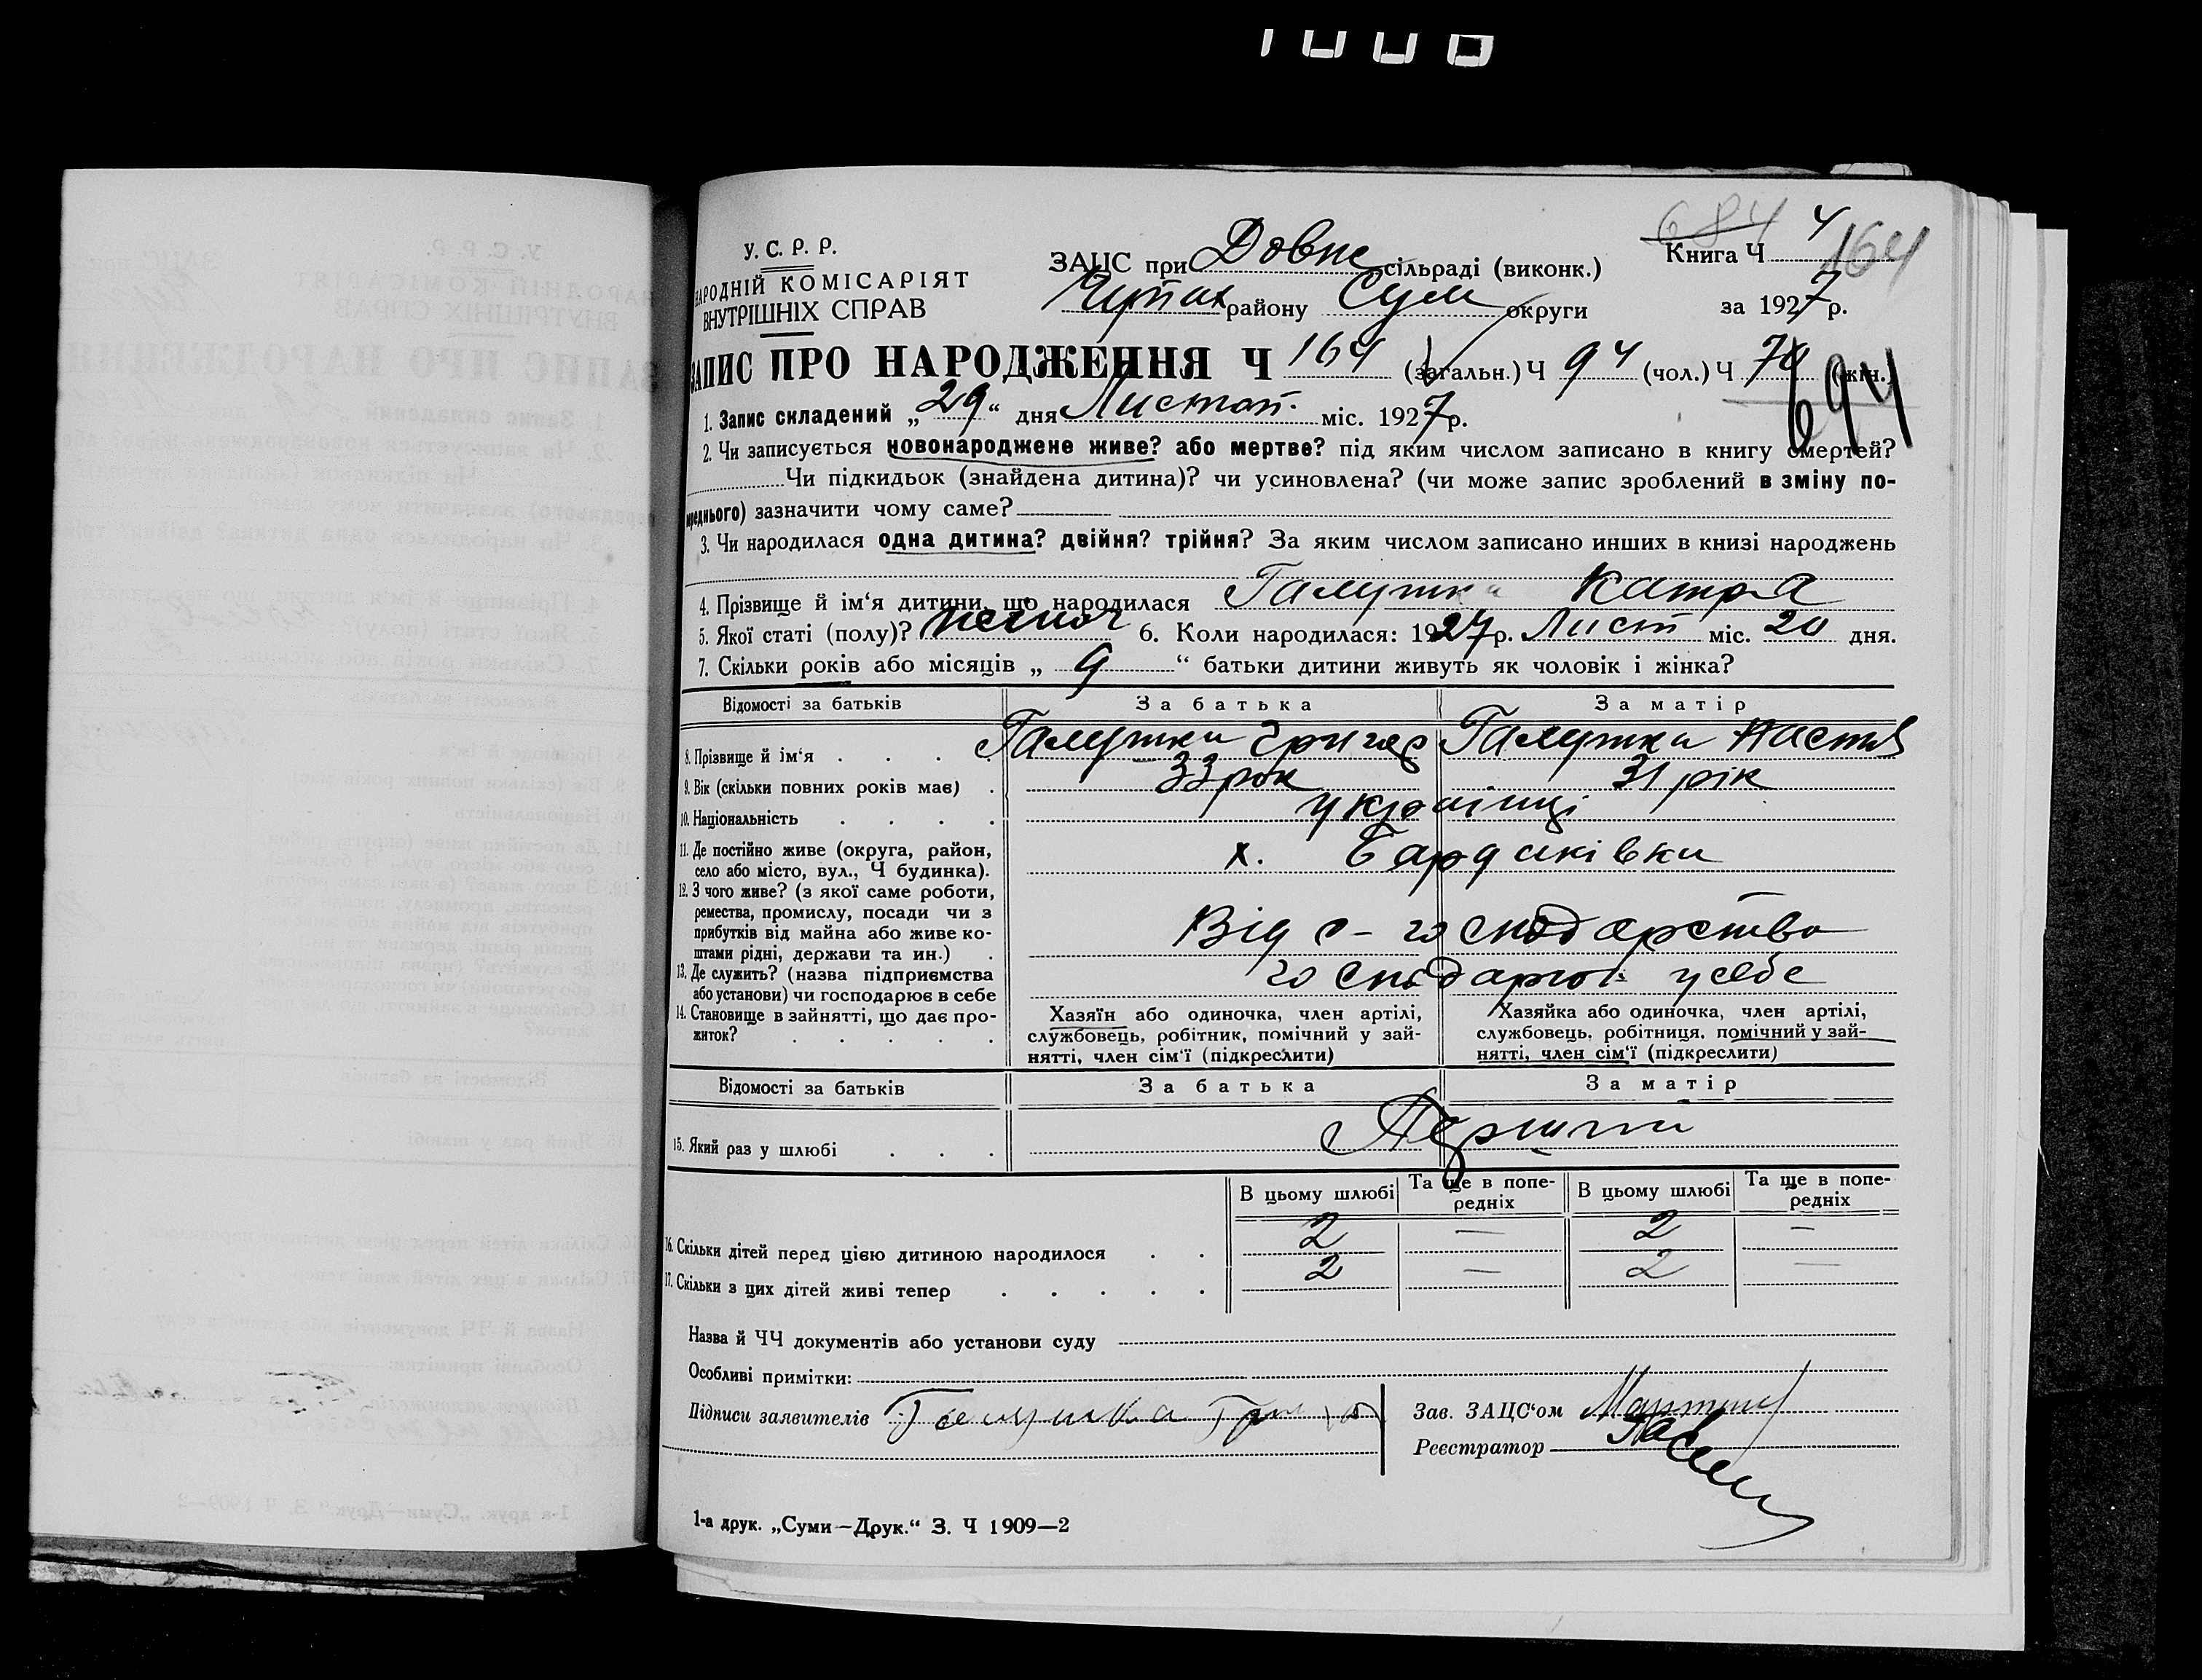 1006
684 4 164
У. С. Р. Р.
НАРОДНІЙ КОМІСАРІЯТ
ВНУТРІШНІХ СПРАВ
ЗАЦС при Довж сільраді (виконк.) Книга Ч
району Сум округи за 1927 р.
ЗАПИС ПРО НАРОДЖЕННЯ Ч 164 (загальн.) Ч 94 (чол.) Ч 70 (жін.)
694
1. Запис складений „29“ дня Листоп. міс. 1927 р.
2. Чи записується новонароджене живе? або мертве? під яким числом записано в книгу смертей?
Чи підкидьок (знайдена дитина)? чи усиновлена? (чи може запис зроблений в зміну по-
переднього) зазначити чому саме?
3. Чи народилася одна дитина? двійня? трійня? За яким числом записано инших в книзі народжень
4. Прізвище й ім'я дитини, що народилася Галушка Катра
5. Якої статі (полу)? жіноч 6. Коли народилася: 1927 р. Лист міс. 20 дня.
7. Скільки років або місяців „9“ батьки дитини живуть як чоловік і жінка?
Відомості за батьків За батька За матір
8. Прізвище й ім'я Галушка Григор Галушка Настя
9. Вік (скільки повних років має) 33 рок 31 рік
10. Національність українці
11. Де постійно живе (округа, район,
село або місто, вул., Ч будинка). х. Бардаківка
12. З чого живе? (з якої саме роботи,
ремества, промислу, посади чи з
прибутків від майна або живе ко-
штами рідні, держави та ин.) Від с-господарства
13. Де служить? (назва підприємства
або установи) чи господарює в себе господарюї у себе
14. Становище в зайнятті, що дає про-
житок?
Хазяїн або одиночка, член артілі,
службовець, робітник, помічний у зай-
нятті, член сім'ї (підкреслити)
Хазяйка або одиночка, член артілі,
службовець, робітниця, помічний у зай-
нятті, член сім'ї (підкреслити)
Відомості за батьків За батька За матір
15. Який раз у шлюбі Перший
В цьому шлюбі Та ще в попе-редніх В цьому шлюбі Та ще в попе-редніх
16. Скільки дітей перед цією дитиною народилося 2 — 2 —
17. Скільки з цих дітей живі тепер 2 — 2 —
Назва й ЧЧ документів або установи суду
Особливі примітки:
Підписи заявителів Галушка Зав. ЗАЦС'ом
Реєстратор
1-а друк. „Суми—Друк.“ З. Ч 1909—2